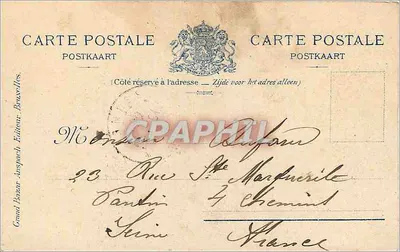 CARTE POSTALE CARTE POSTALE
POSTKAART POSTKAART
(Côté réservé à l'adresse — Zijde voor het adres alleen)
Grand Bazar Anspach Editeur Bruxelles.
CPAPHIL
Monsieur Dufour
23 Rue Ste Marguerite
Pantin 4 Chemins
Seine France